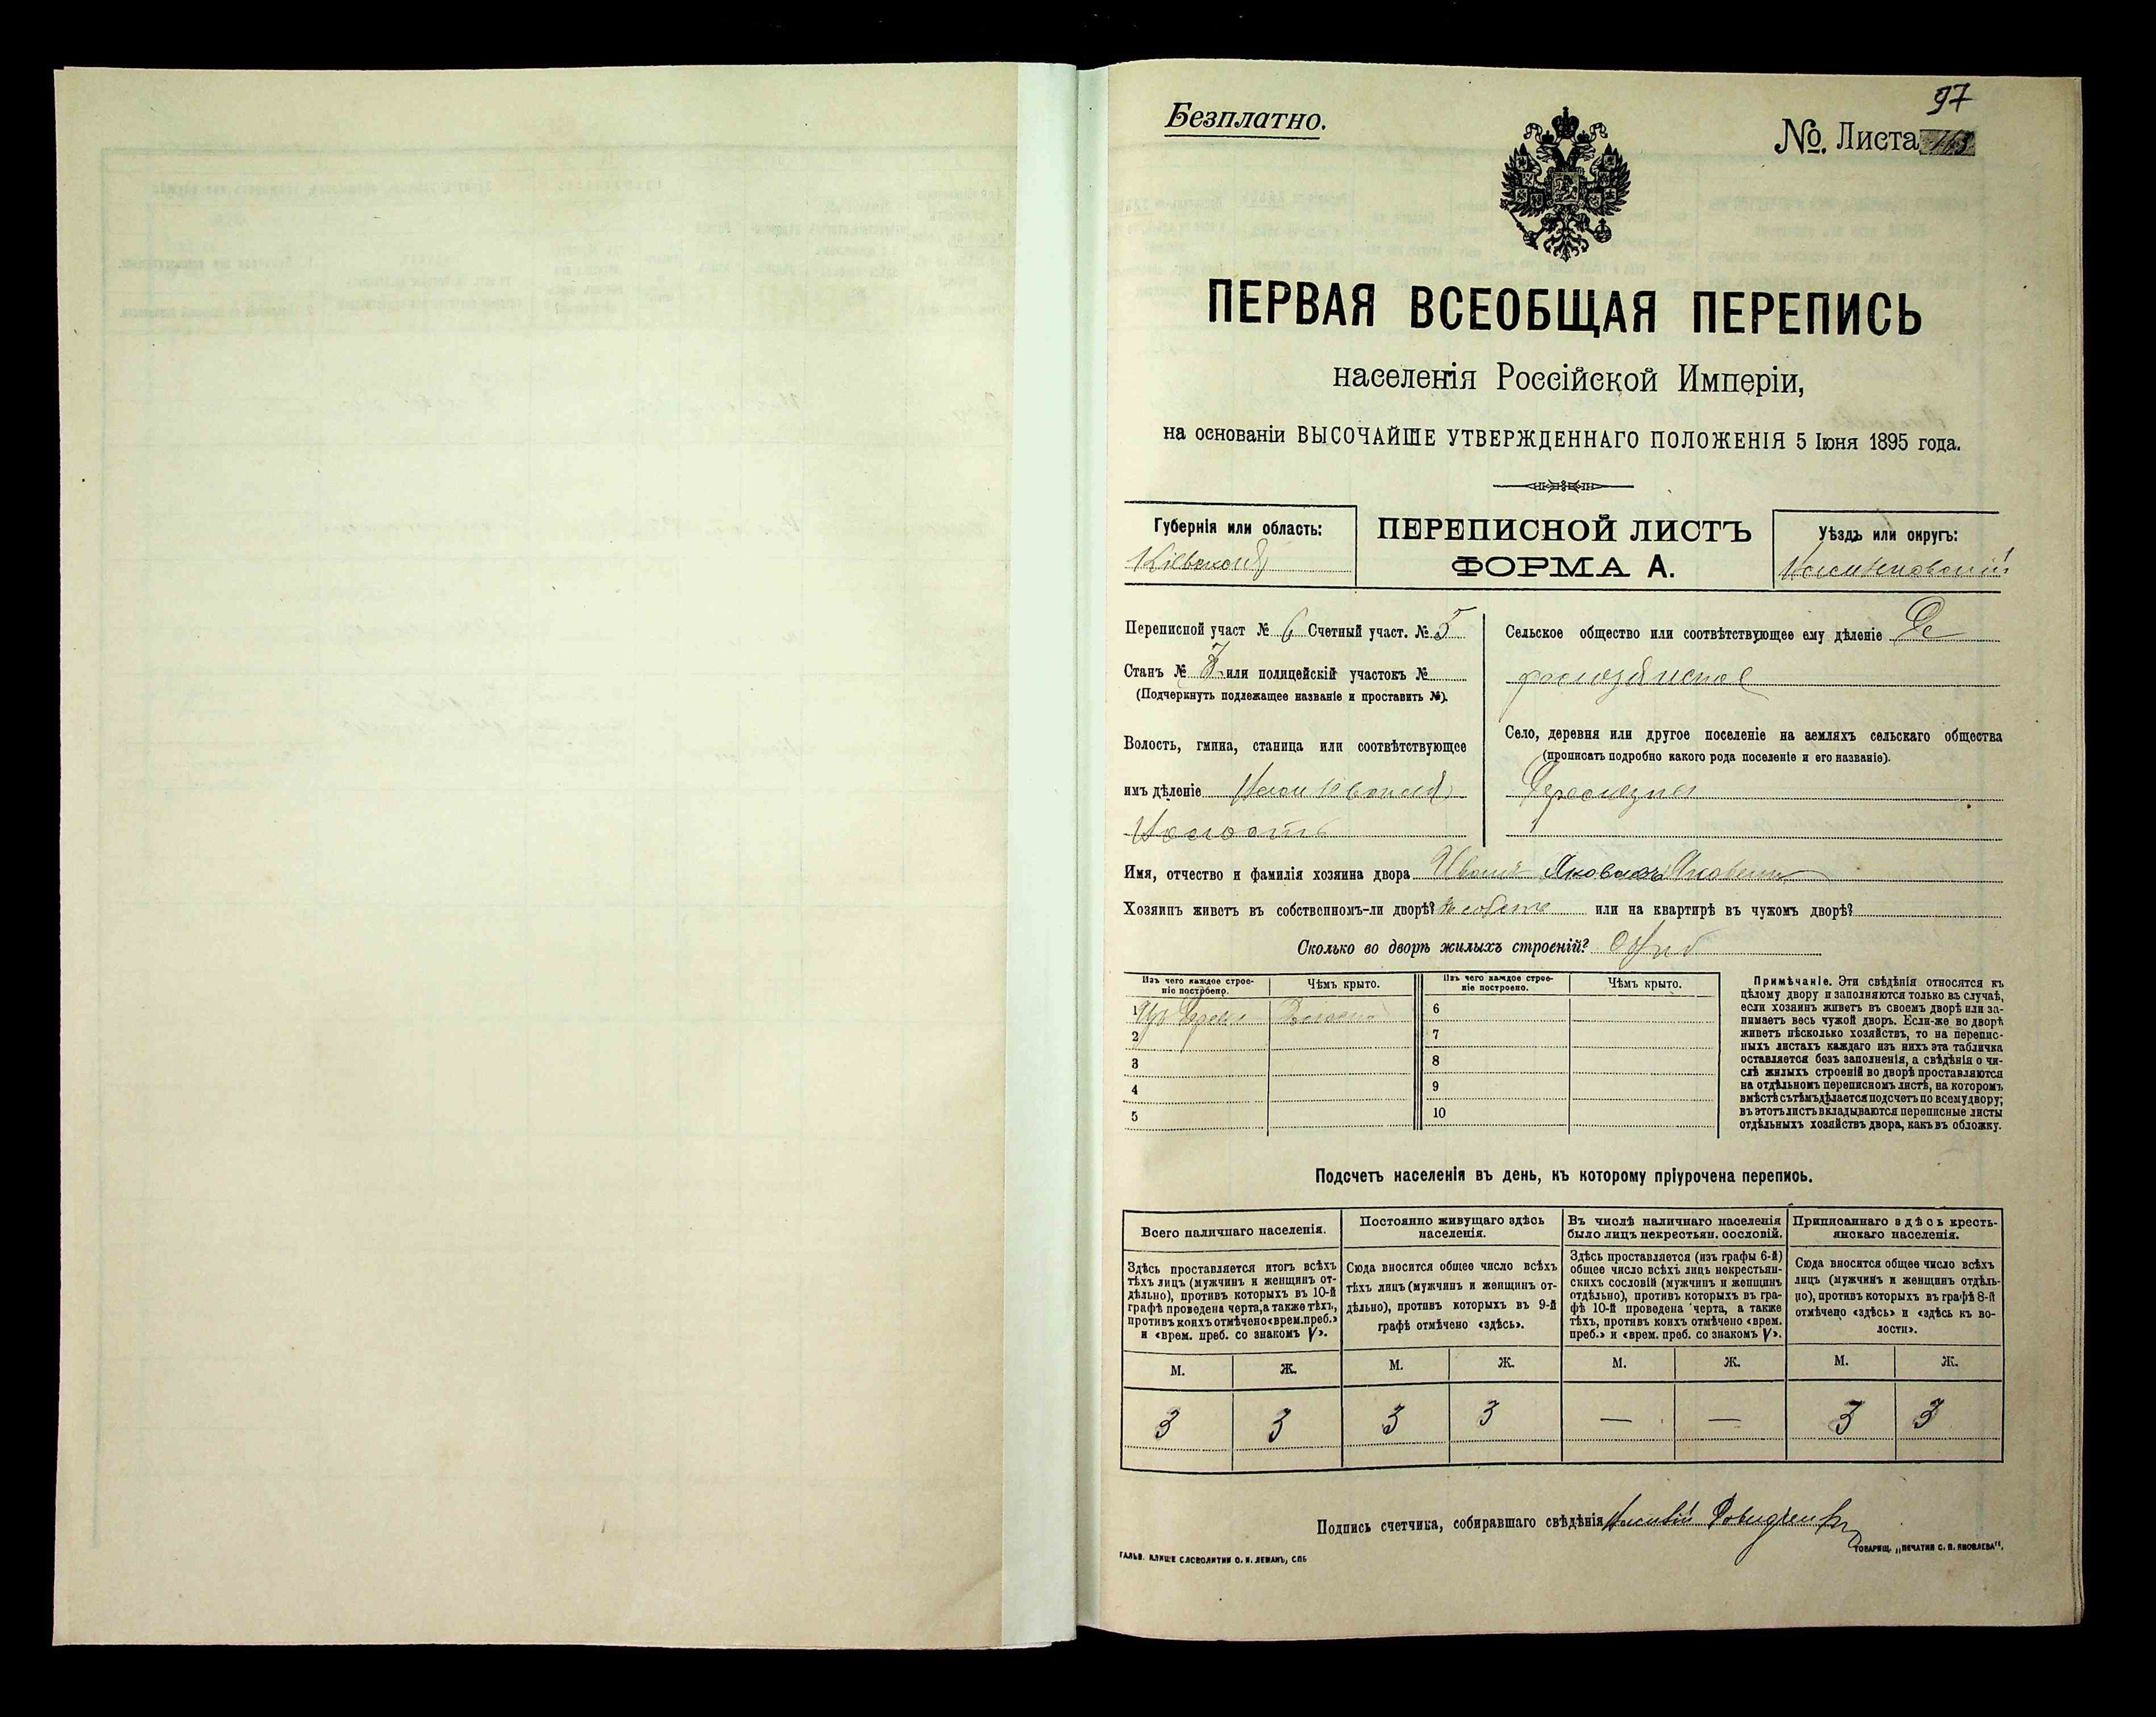 97
Безплатно.
№. Листа
ПЕРВАЯ ВСЕОБЩАЯ ПЕРЕПИСЬ
населенія Россійской Имперіи,
на основаніи ВЫСОЧАЙШЕ УТВЕРЖДЕННАГО ПОЛОЖЕНІЯ 5 Іюня 1895 года.
Губернія или область:
ПЕРЕПИСНОЙ ЛИСТЪ
ФОРМА А.
Уѣздъ или округъ:
Переписной участ № 6 Счетный участ. № 5
Станъ № или полицейскій участокъ №
(Подчеркнуть подлежащее названіе и проставить №).
Волость, гмина, станица или соотвѣтствующее
имъ дѣленіе
Волость
Сельское общество или соотвѣтствующее ему дѣленіе
Село, деревня или другое поселеніе на земляхъ сельскаго общества
(прописать подробно какого рода поселеніе и его названіе).
Имя, отчество и фамилія хозяина двора Иванъ Яковлевъ
Хозяинъ живетъ въ собственномъ-ли дворѣ? или на квартирѣ въ чужомъ дворѣ?
Сколько во дворѣ жилыхъ строеній?
Изъ чего каждое строе-
ніе построено.
Чѣмъ крыто.
Изъ чего каждое строе-
ніе построено.
Чѣмъ крыто.
1
2
3
4
5
6
7
8
9
10
Примѣчаніе. Эти свѣдѣнія относятся къ
цѣлому двору и заполняются только въ случаѣ,
если хозяинъ живетъ въ своемъ дворѣ или за-
нимаетъ весь чужой дворъ. Если-же во дворѣ
живетъ нѣсколько хозяйствъ, то на перепис-
ныхъ листахъ каждаго изъ нихъ эта табличка
оставляется безъ заполненія, а свѣдѣнія о чи-
слѣ жилыхъ строеній во дворѣ проставляются
на отдѣльномъ переписномъ листѣ, на которомъ
вмѣстѣ съ тѣмъ дѣлается подсчетъ по всему двору;
въ этотъ листъ вкладываются переписные листы
отдѣльныхъ хозяйствъ двора, какъ въ обложку.
Подсчетъ населенія въ день, къ которому пріурочена перепись.
Всего наличнаго населенія.
Постоянно живущаго здѣсь
населенія.
Въ числѣ наличнаго населенія
было лицъ некрестьян. сословій.
Приписаннаго здѣсь кресть-
янскаго населенія.
Здѣсь проставляется итогъ всѣхъ
тѣхъ лицъ (мужчинъ и женщинъ от-
дѣльно), противъ которыхъ въ 10-й
графѣ проведена черта, а также тѣхъ,
противъ коихъ отмѣчено «врем. преб.»
и «врем. преб. со знакомъ V».
Сюда вносится общее число всѣхъ
тѣхъ лицъ (мужчинъ и женщинъ от-
дѣльно), противъ которыхъ въ 9-й
графѣ отмѣчено «здѣсь».
Здѣсь проставляется (изъ графы 6-й)
общее число всѣхъ лицъ некрестьян-
скихъ сословій (мужчинъ и женщинъ
отдѣльно), противъ которыхъ въ гра-
фѣ 10-й проведена черта, а также
тѣхъ, противъ коихъ отмѣчено «врем.
преб.» и «врем. преб. со знакомъ V».
Сюда вносится общее число всѣхъ
лицъ (мужчинъ и женщинъ отдѣль-
но), противъ которыхъ въ графѣ 8-й
отмѣчено «здѣсь» и «здѣсь къ во-
лости».
М. Ж. М. Ж. М. Ж. М. Ж.
3 3 3 3 — — 3 3
Подпись счетчика, собиравшаго свѣдѣнія
ГАЛЬВ. КЛИШЕ СЛОВОЛИТНИ О. И. ЛЕМАНЪ, СПБ
ТОВАРИЩ. „ПЕЧАТНЯ С. П. ЯКОВЛЕВА“.